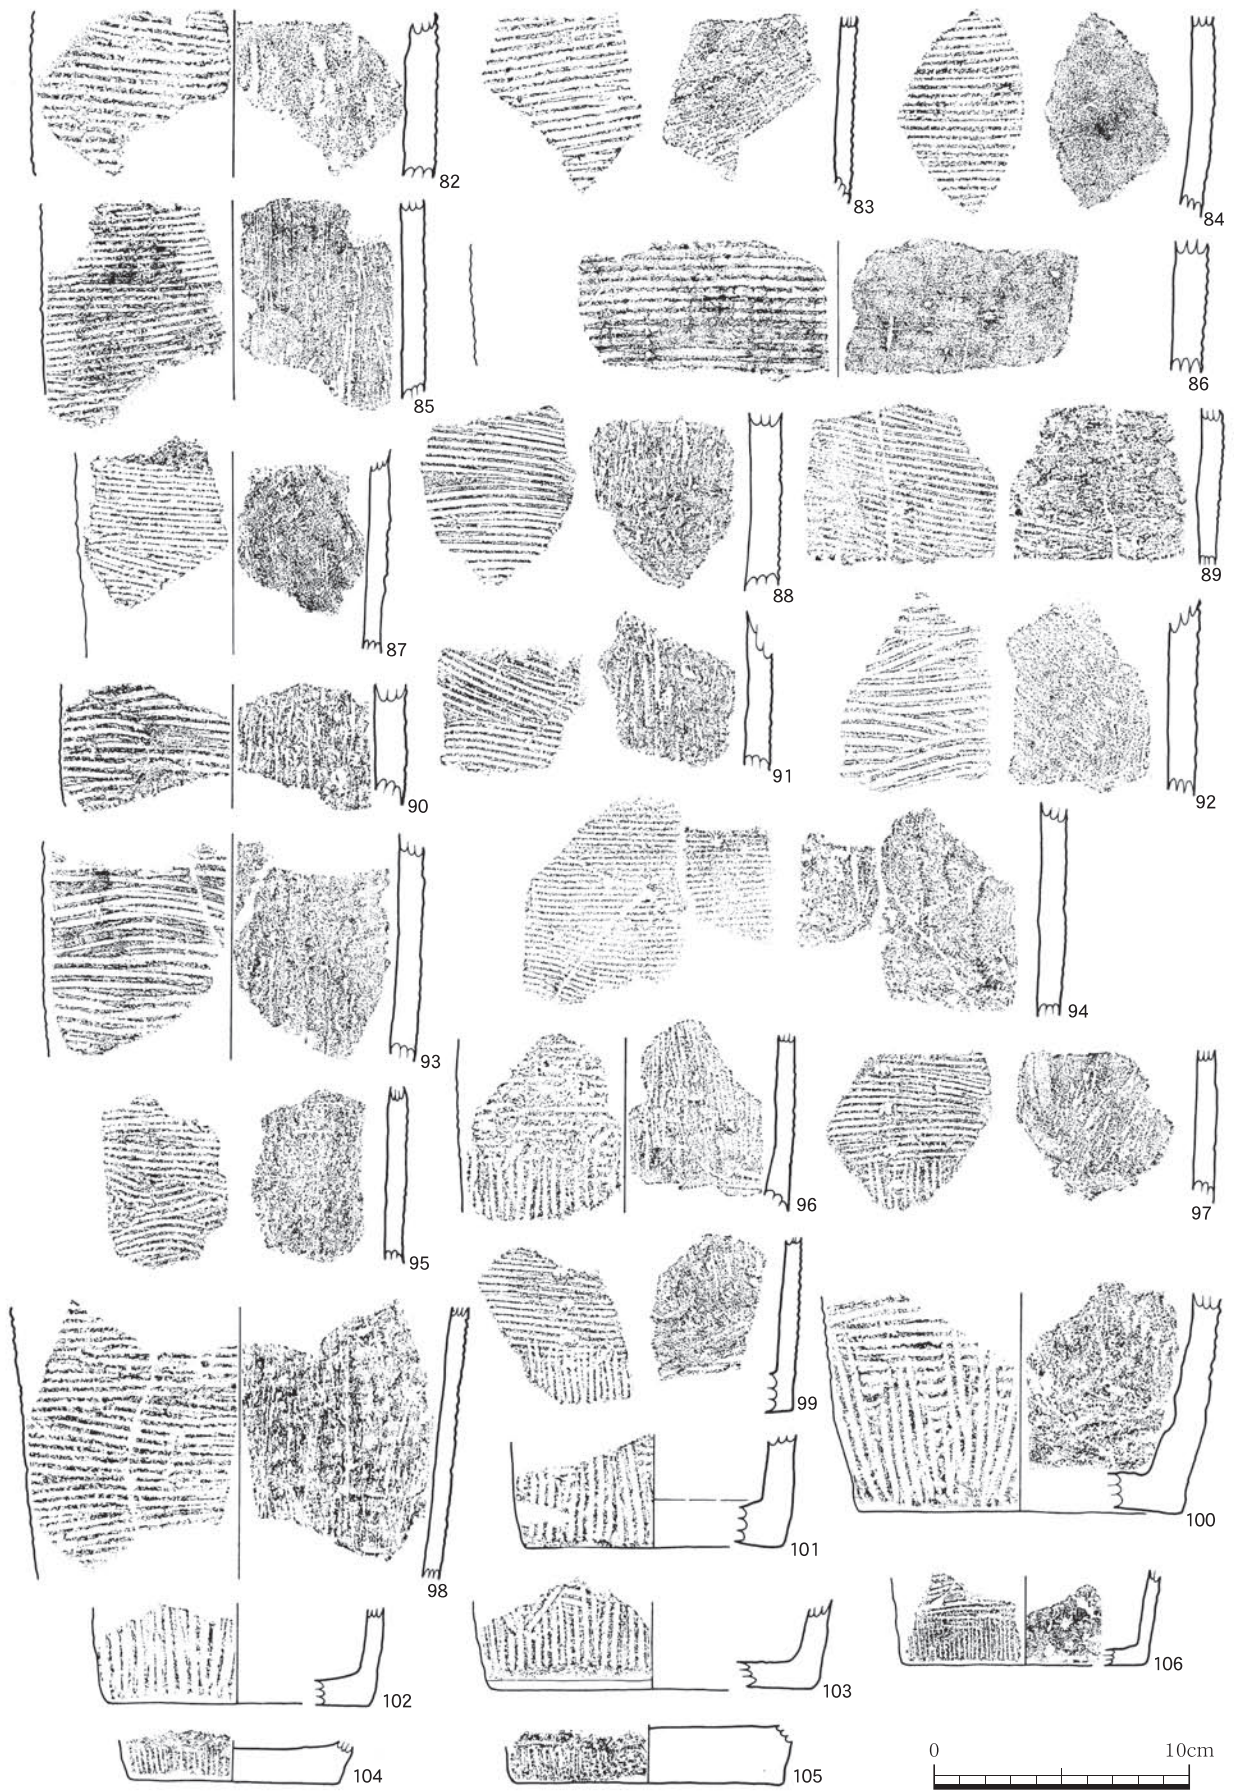 82
83
84
85
86
87
88
89
90
91
92
93
94
95
96
97
98
99
100
101
102
103
104
105
106
0 10cm